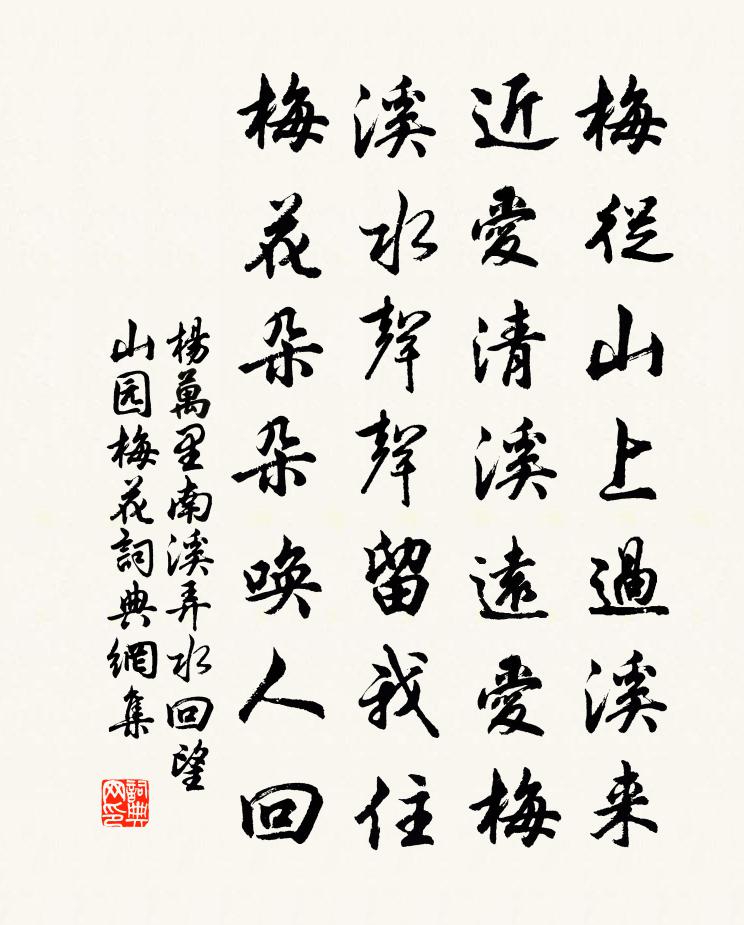 梅從山上過溪来
近愛清溪遠愛梅
溪水聲聲留我住
梅花朵朵唤人回
楊萬里南溪弄水回望
山园梅花詞典網集
詞典
网印